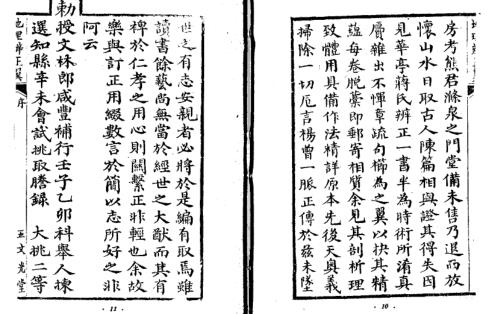 房考熊君滌泉之門堂備未售乃退而放
懷山水日取古人陳篇相與證其得失因
見華亭蔣氏辨正一書半為時術所淆真
贋雜出不憚章疏句櫛為之翼以抉其精
蘊每卷脫藁即郵寄相質余見其剖析理
致體用具備作法精詳原本先後天奧義
掃除一切卮言楊曾一脈正傳於茲未墜
· 10 ·
世之有志安親者必將於是編有取焉雖
讀書餘藝尚無當於經世之大猷而其有
裨於仁孝之用心則關繫正非輕也余故
樂與訂正用綴數言於簡以志所好之非
阿云
敕
授文林郎咸豐補行壬子乙卯科舉人揀
選知縣辛未會試挑取謄錄 大挑二等
地理辨正翼 序 五 文光堂
· 11 ·